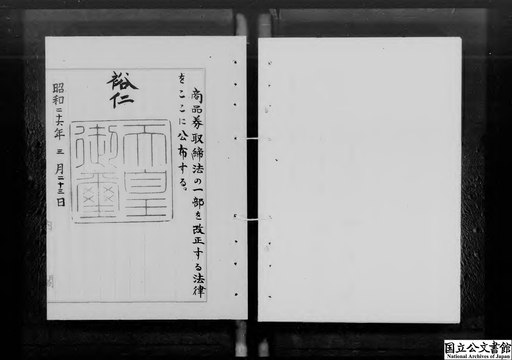 商品券取締法の一部を改正する法律
をここに公布する。
裕仁
天皇
御璽
昭和二十六年三月二十三日
国立公文書館
National Archives of Japan